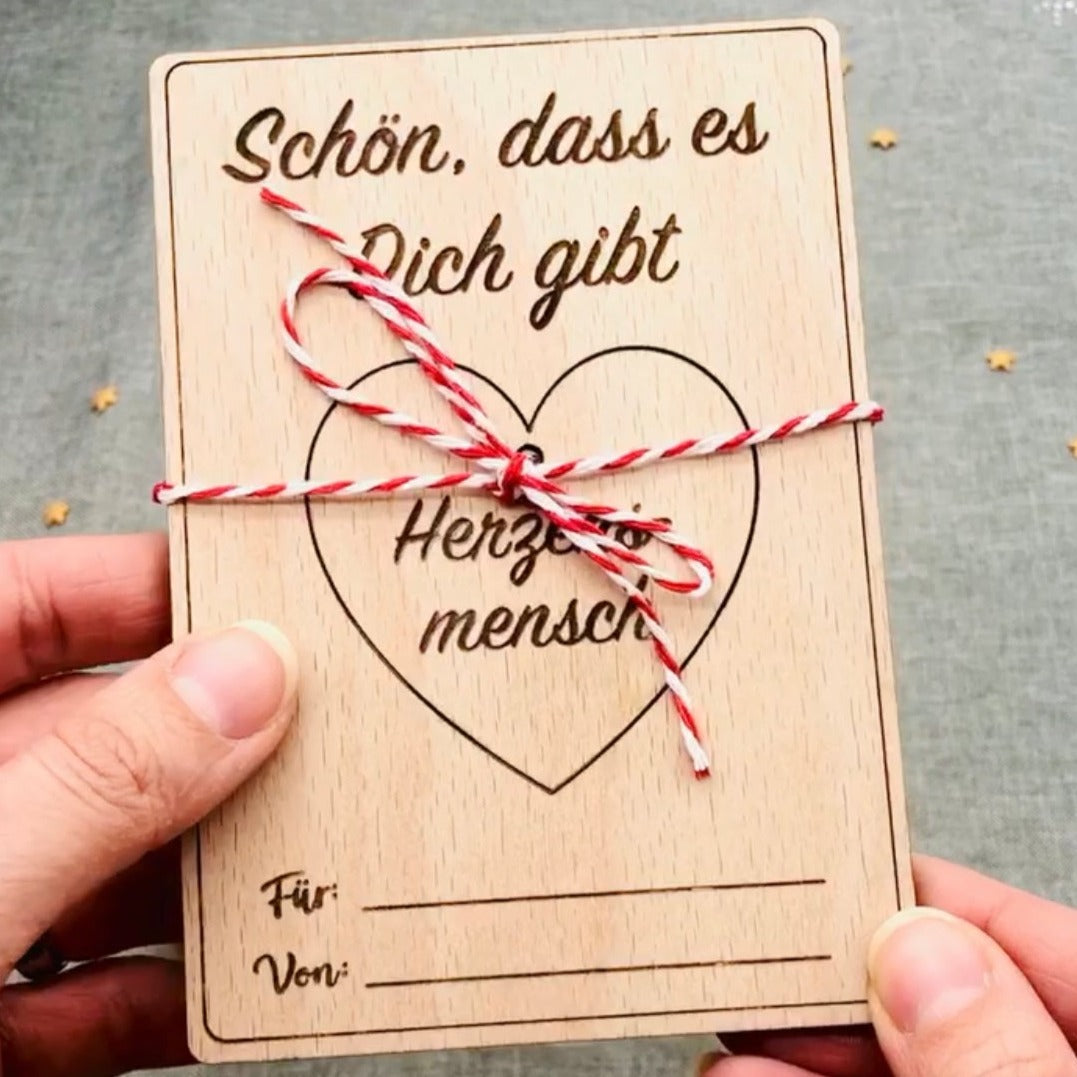 Schön, dass es
Dich gibt
Herzens
mensch
Für:
Von: